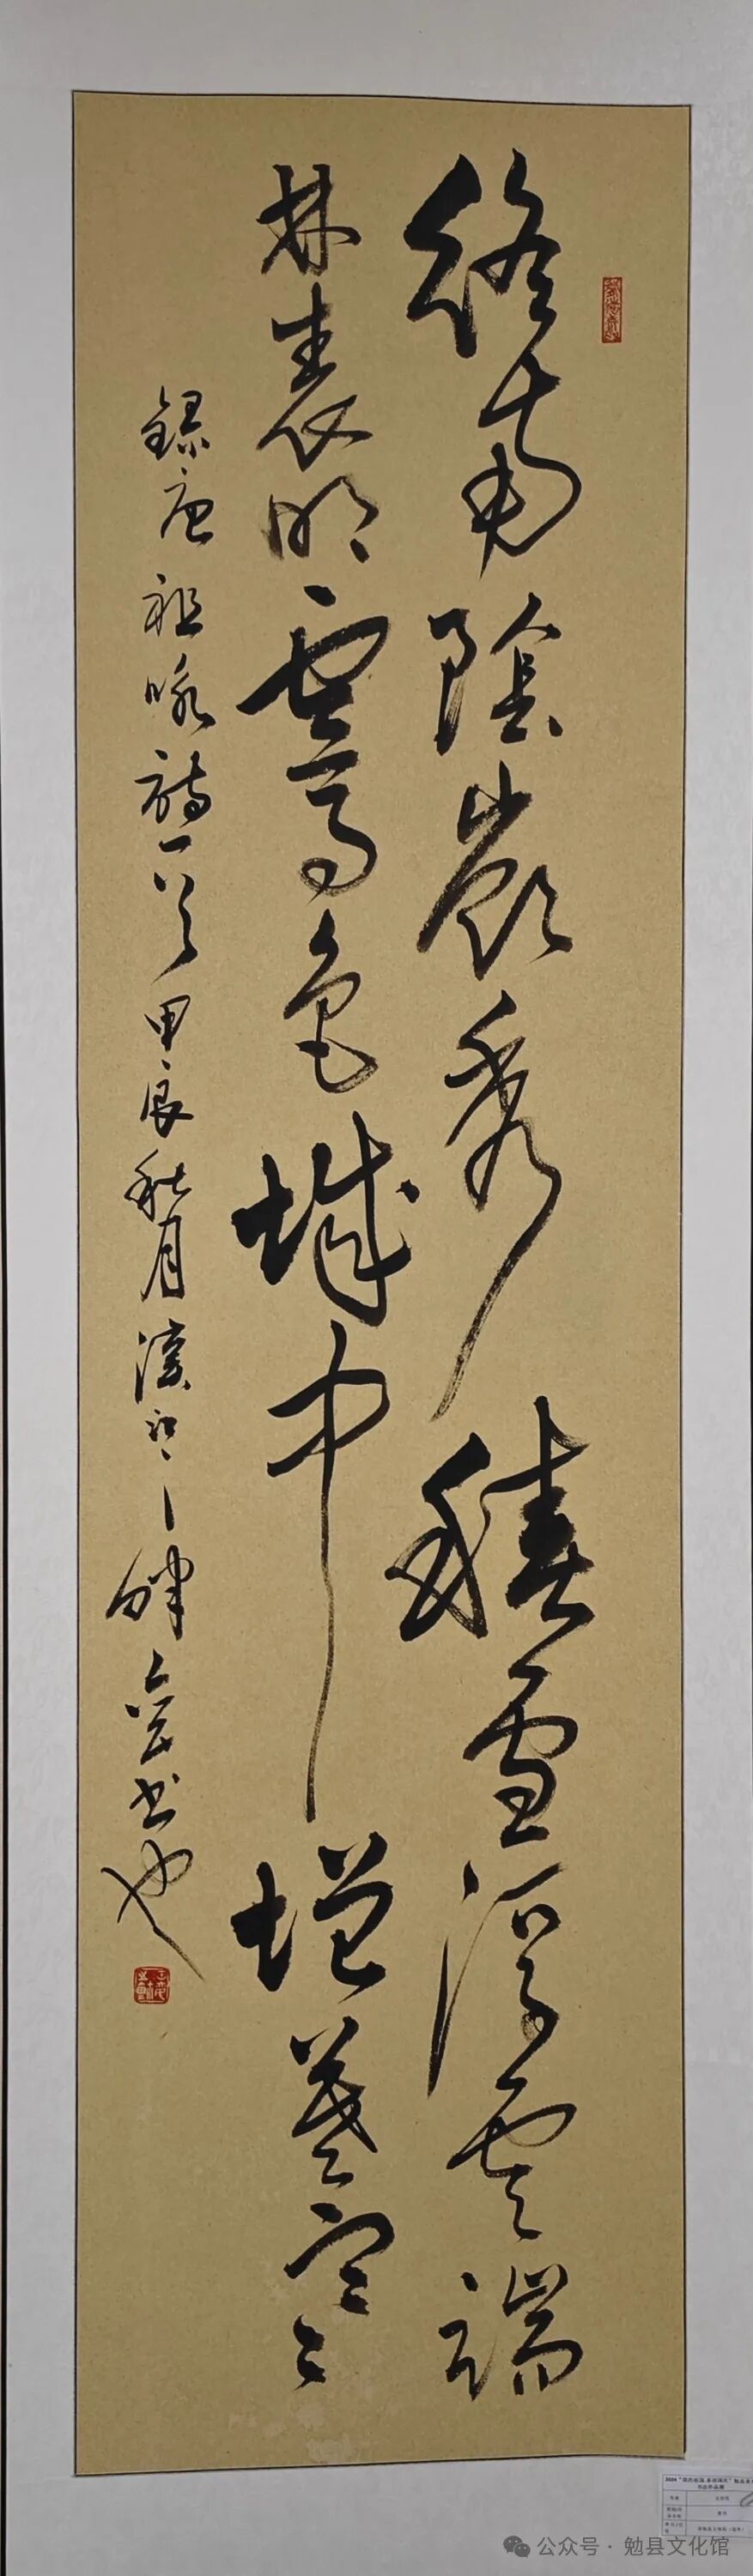 终南阴岭秀积雪浮云端
林表明霁色城中增暮寒
录唐祖咏诗一首甲辰秋月汉江畔会书也
2024
公众号·勉县文化馆